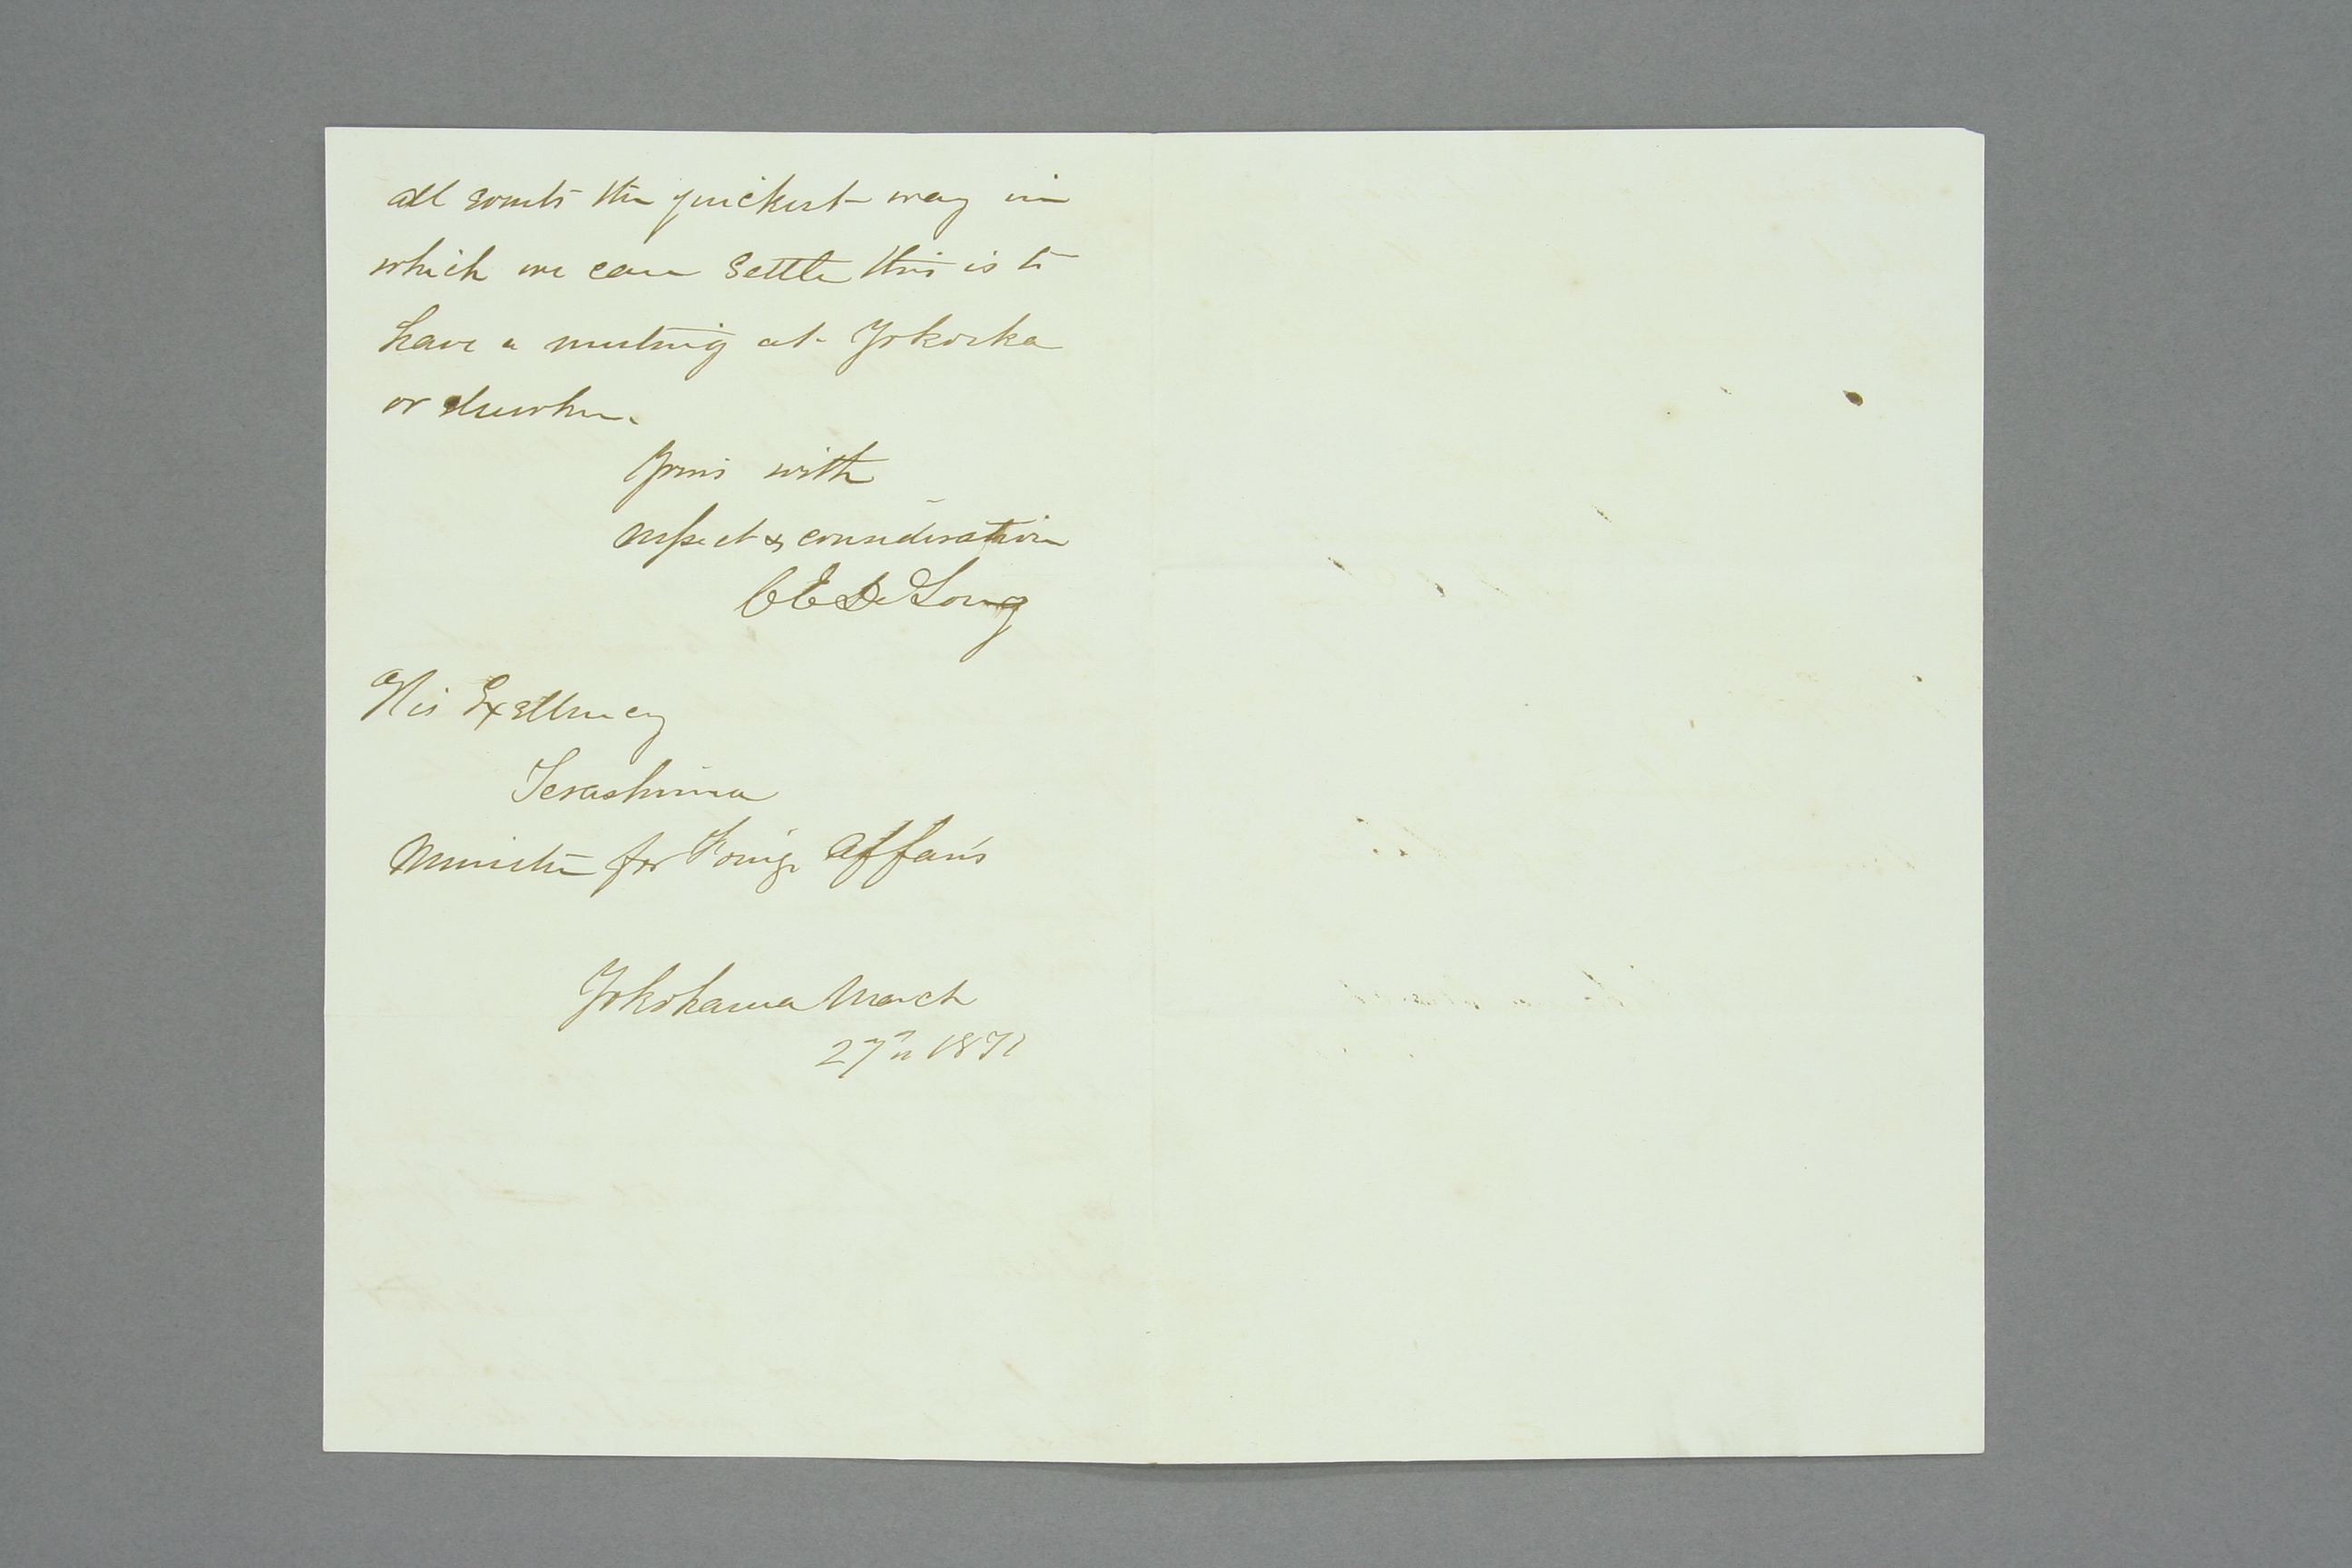 all events the quickest way in
which we can settle this is to
have a meeting at Yokoska
or elsewhere.
Yours with
respect & consideration
C E De Long
His Excellency
Terashima
Minister for Foreign Affairs
Yokohama March
27th 1871